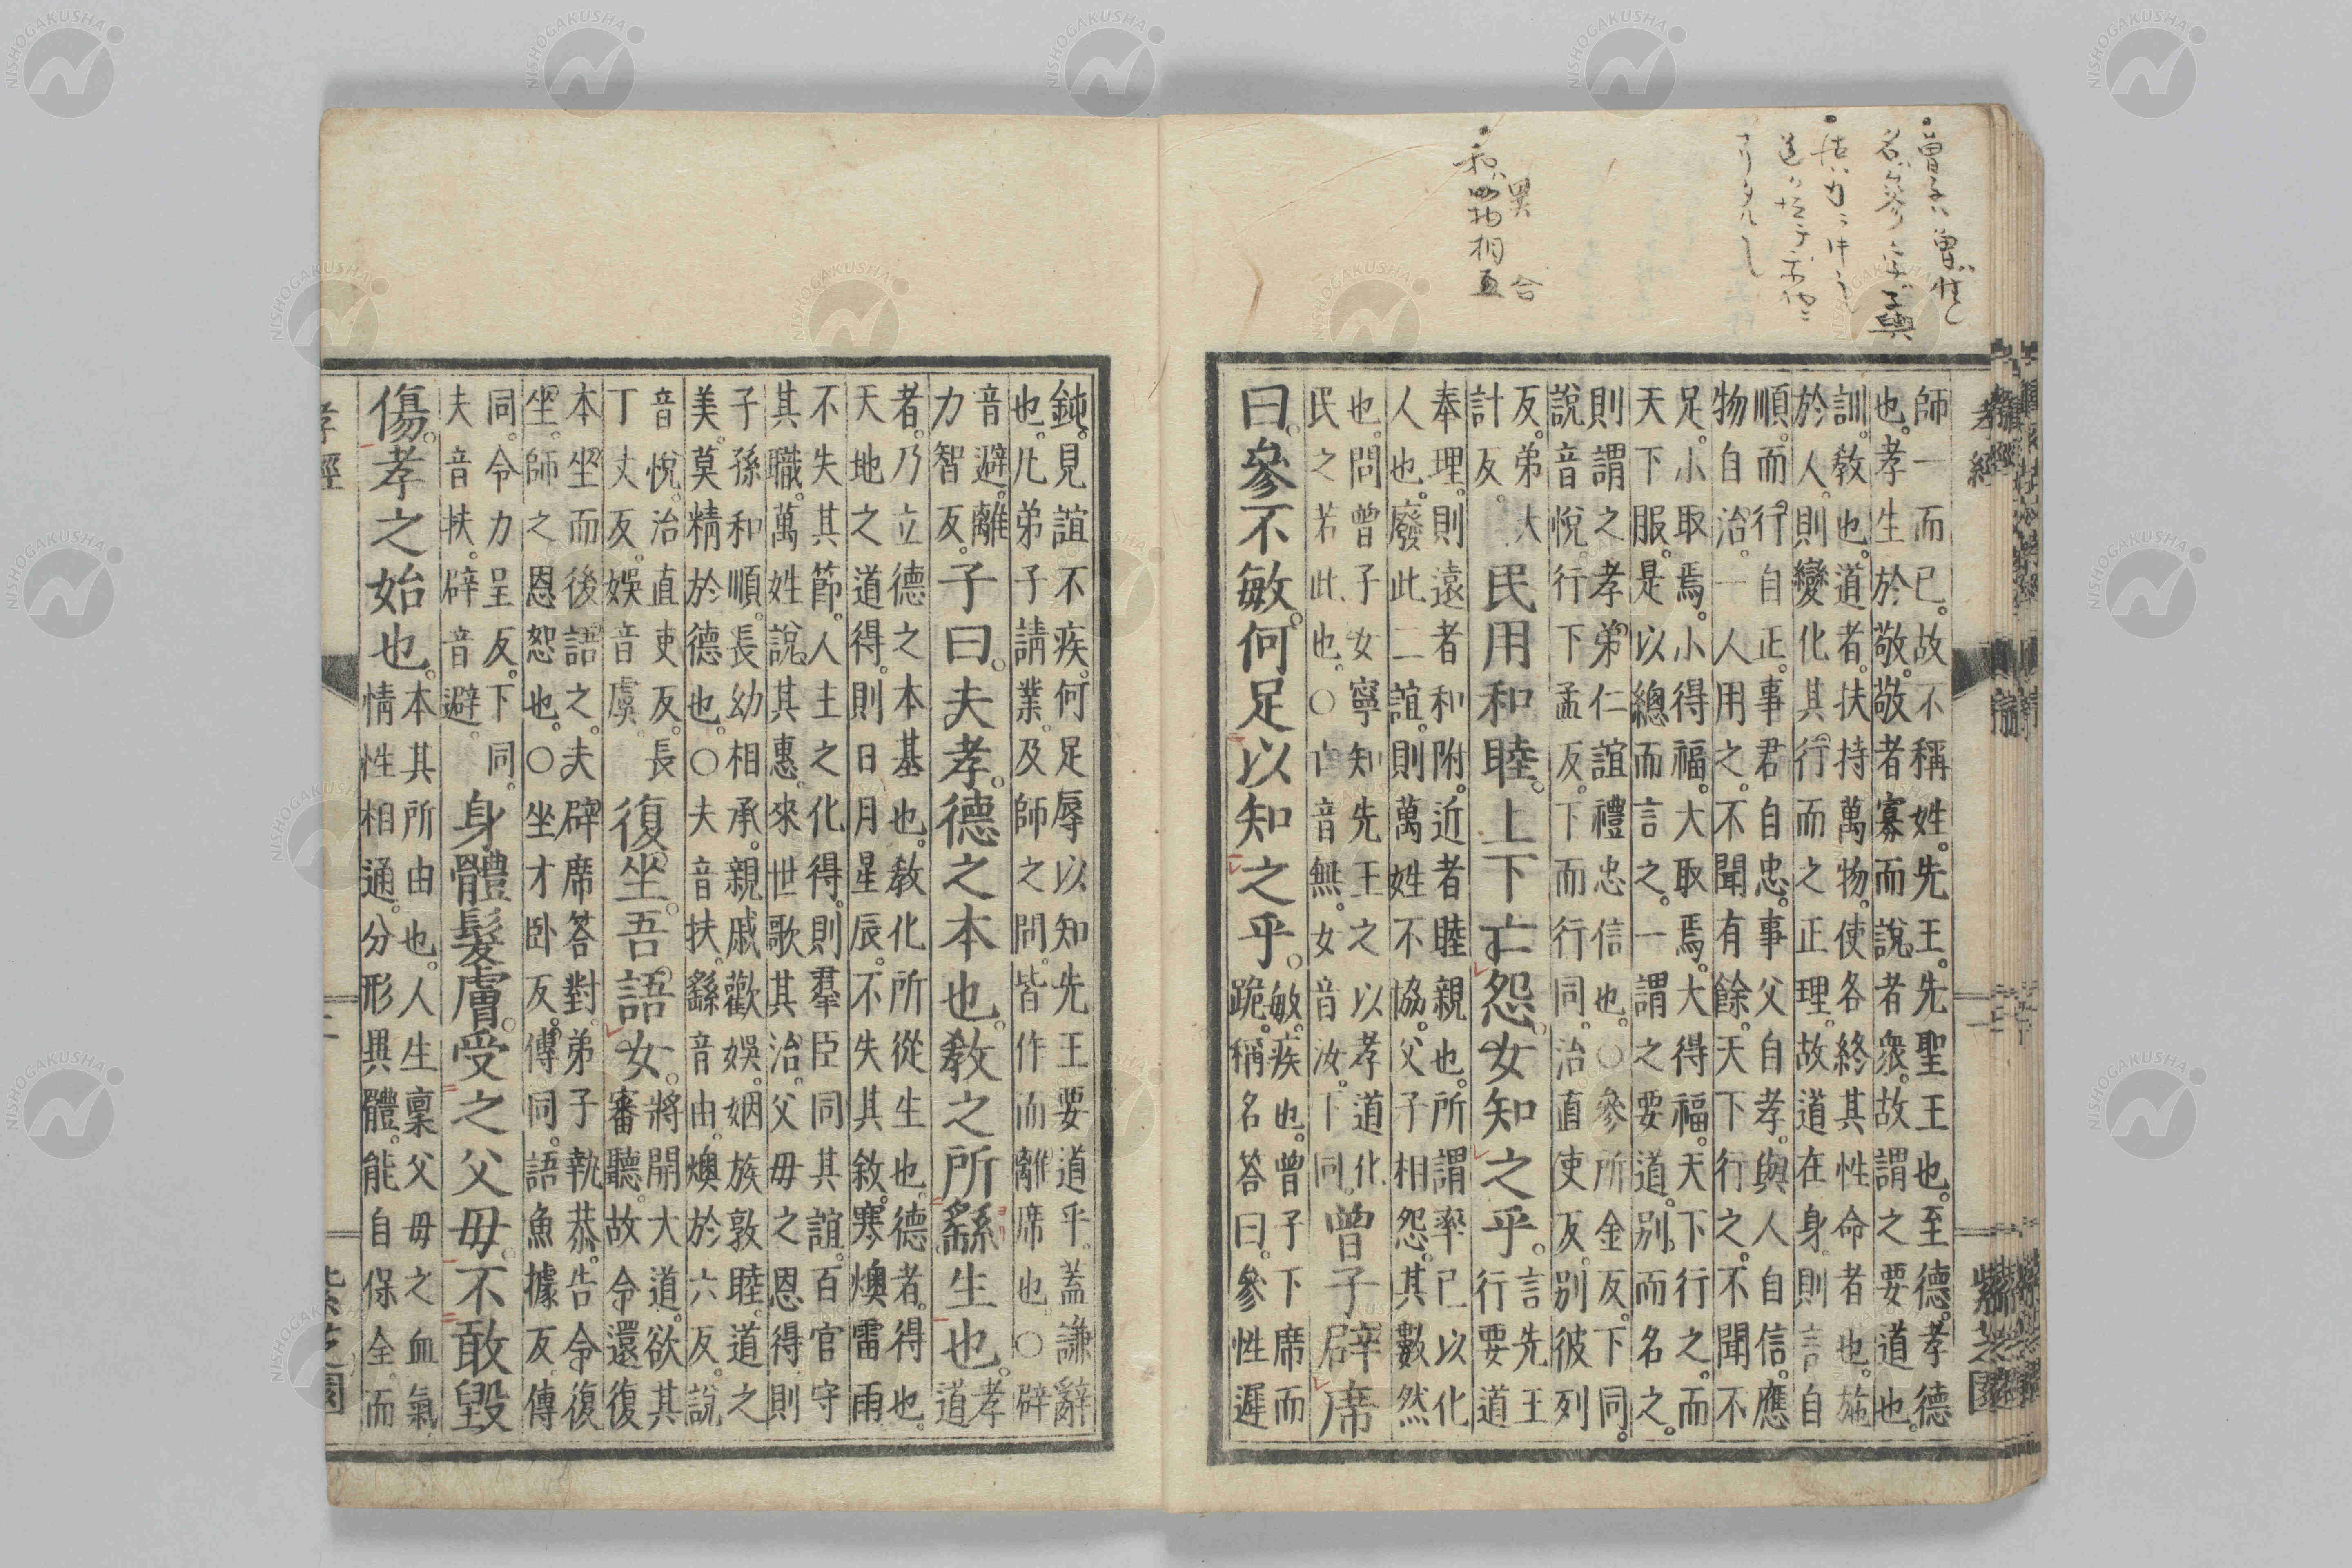 曾子ハ曾ガ姓
名ガ參
字ガ子輿
異 合
師一而已。故不稱姓。先王。先聖王也。至德。孝德
也。孝生於敬。敬者寡而說者衆。故謂之要道也。
訓。敎也。道者。扶持萬物。使各終其性命者也。施
於人。則變化其行而之正理。故道在身。則言自
順。而行自正。事君自忠。事父自孝。與人自信。應
物自治。一人用之。不聞有餘。天下行之。不聞不
足。小取焉。小得福。大取焉。大得福。天下行之。而
天下服。是以總而言之。一謂之要道。別而名之。
則謂之孝弟仁誼禮忠信也。○參所金反。下同。
說音悅。行下孟反。下而行同。治直吏反。別彼列
反。弟大
計反。
民用和睦。上下亡怨。女知之乎。
言先王
行要道
奉理。則遠者和附。近者睦親也。所謂率已以化
人也。廢此二誼。則萬姓不協。父子相怨。其數然
也。問曾子女寧知先王之以孝道化
民之若此也。○亡音無。女音汝。下同。
曾子辟席
曰。參不敏。何足以知之乎。
敏。疾也。曾子下席而
跪。稱名答曰。參性遲
孝經
紫芝園
鈍。見誼不疾。何足辱以知先王要道乎。蓋謙辭
也。凡弟子請業。及師之問。皆作而離席也。○辟
音避。離
力智反。
子曰。夫孝。德之本也。敎之所繇生也。
孝
道
者。乃立德之本基也。敎化所從生也。德者。得也。
天地之道得。則日月星辰。不失其敘。寒燠雷雨
不失其節。人主之化得。則羣臣同其誼。百官守
其職。萬姓說其惠。來世歌其治。父母之恩得則
子孫和順。長幼相承。親戚歡娛。姻族敦睦。道之
美。莫精於德也。○夫音扶。繇音由。燠於六反。說
音悅。治直吏反。長
丁丈反。娛音虞。
復坐。吾語女。
將開大道。欲其
審聽。故令還復
本坐而後語之。夫辟席答對。弟子執恭。告令復
坐。師之恩恕也。○坐才臥反。傳同。語魚據反。傳
同。令力呈反。下同。
夫音扶。辟音避。
身體髮膚。受之父母。不敢毀
傷。孝之始也。
本其所由也。人生稟父母之血氣
情性相通。分形異體。能自保全。而
孝經
二
紫芝園
NISHOGAKUSHA